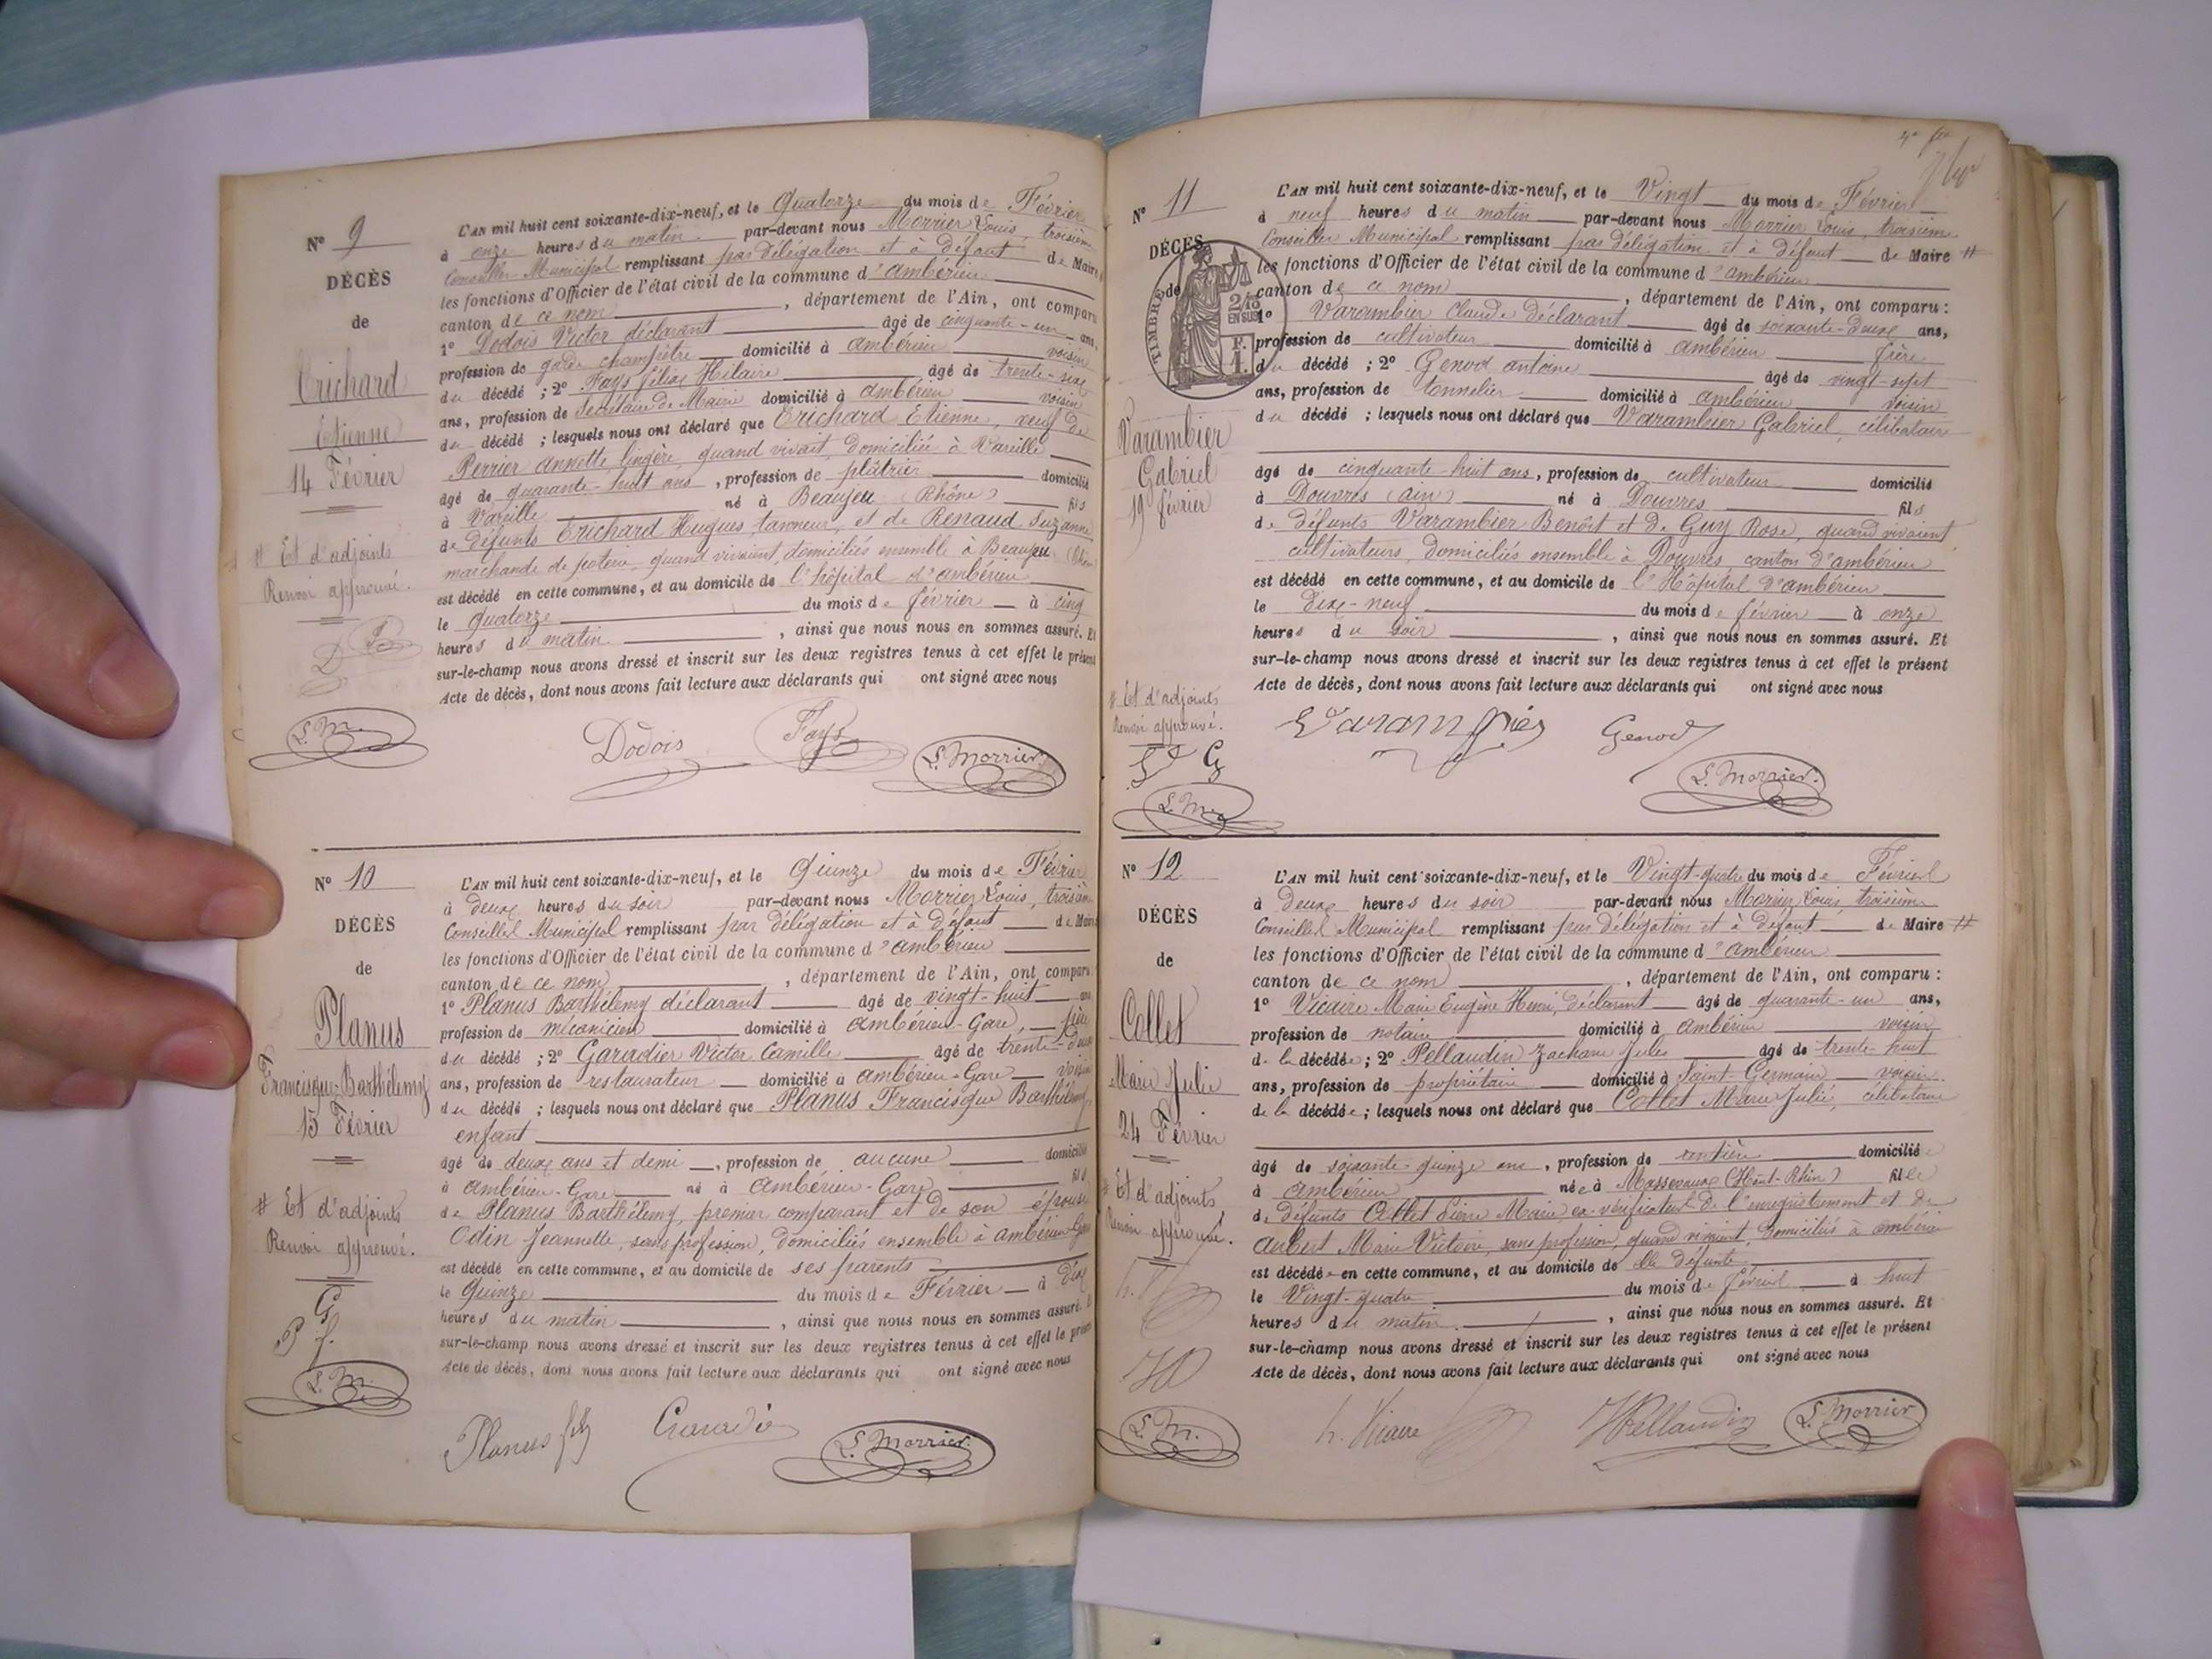 N° 9
DÉCÈS
de
Erichard
Etienne
14 Février
# Et d'adjoints
Renvoi approuvé.
L'AN mil huit cent soixante-dix-neuf, et le Quatorze du mois de Février
à onze heures du matin par-devant nous Morrier Louis, troisième
Conseiller Municipal remplissant par délégation et à défaut de Maire
les fonctions d'Officier de l'état civil de la commune d'Ambérieu
canton de ce nom, département de l'Ain, ont comparu
1° Dodois Victor déclarant âgé de cinquante-un ans,
profession de garde champêtre domicilié à Ambérieu voisin
du décédé ; 2° Fays Félix Hilaire âgé de trente-six
ans, profession de Secrétaire de Mairie domicilié à Ambérieu voisin
du décédé ; lesquels nous ont déclaré que Erichard Etienne, veuf de
Perrier Annette, lingère, quand vivait, domiciliée à Vareille
âgé de quarante-huit ans, profession de plâtrier domicilié
à Vareille né à Beaujeu (Rhône) fils
de défunts Erichard Hugues, tanneur, et de Renaud Suzanne
marchande de poterie, quand vivaient, domiciliés ensemble à Beaujeu
est décédé en cette commune, et au domicile de l'hôpital d'Ambérieu
le quatorze du mois de février à cinq
heures du matin, ainsi que nous nous en sommes assuré. Et
sur-le-champ nous avons dressé et inscrit sur les deux registres tenus à cet effet le présent
Acte de décès, dont nous avons fait lecture aux déclarants qui ont signé avec nous
L. M.
Dodois Fays L. Morrier
N° 10
DÉCÈS
de
Planus
Francisque-Barthélemy
15 Février
# Et d'adjoints
Renvoi approuvé.
G
P f.
L. M.
L'AN mil huit cent soixante-dix-neuf, et le Quinze du mois de Février
à deux heures du soir par-devant nous Morrier Louis, troisième
Conseiller Municipal remplissant par délégation et à défaut de Maire
les fonctions d'Officier de l'état civil de la commune d'Ambérieu
canton de ce nom, département de l'Ain, ont comparu
1° Planus Barthélemy déclarant âgé de vingt-huit ans
profession de mécanicien domicilié à Ambérieu-Gare, père
du décédé ; 2° Garadier Victor Camille âgé de trente-deux
ans, profession de restaurateur domicilié à Ambérieu-Gare voisin
du décédé ; lesquels nous ont déclaré que Planus Francisque Barthélemy,
enfant
âgé de deux ans et demi, profession de aucune domicilié
à Ambérieu-Gare né à Ambérieu-Gare fils
de Planus Barthélemy, premier comparant et de son épouse
Odin Jeannette, sans profession, domiciliés ensemble à Ambérieu-Gare
est décédé en cette commune, et au domicile de ses parents
le Quinze du mois de Février à dix
heures du matin, ainsi que nous nous en sommes assuré. Et
sur-le-champ nous avons dressé et inscrit sur les deux registres tenus à cet effet le présent
Acte de décès, dont nous avons fait lecture aux déclarants qui ont signé avec nous
Planus fils L. Morrier
N° 11
DÉCÈS
de
TIMBRE 2/10 EN SUS
Varambier
Gabriel
19 février
# Et d'adjoints
Renvoi approuvé.
L. M.
L'AN mil huit cent soixante-dix-neuf, et le Vingt du mois de Février
à neuf heures du matin par-devant nous Morrier Louis, troisième
Conseiller Municipal remplissant par délégation et à défaut de Maire #
les fonctions d'Officier de l'état civil de la commune d'Ambérieu
canton de ce nom, département de l'Ain, ont comparu :
1° Varambier Claude déclarant âgé de soixante-deux ans,
profession de cultivateur domicilié à Ambérieu frère
du décédé ; 2° Genod Antoine âgé de vingt-sept
ans, profession de tonnelier domicilié à Ambérieu voisin
du décédé ; lesquels nous ont déclaré que Varambier Gabriel, célibataire
âgé de cinquante-huit ans, profession de cultivateur domicilié
à Douvres (Ain) né à Douvres fils
de défunts Varambier Benoît et de Guy Rose, quand vivaient
cultivateurs, domiciliés ensemble à Douvres, canton d'Ambérieu
est décédé en cette commune, et au domicile de l'Hôpital d'Ambérieu
le dix-neuf du mois de février à onze
heures du soir, ainsi que nous nous en sommes assuré. Et
sur-le-champ nous avons dressé et inscrit sur les deux registres tenus à cet effet le présent
Acte de décès, dont nous avons fait lecture aux déclarants qui ont signé avec nous
Genod L. Morrier
N° 12
DÉCÈS
de
Collet
Marie Julie
24 Février
# Et d'adjoints
Renvoi approuvé.
L. M.
L'AN mil huit cent soixante-dix-neuf, et le Vingt-quatre du mois de Février
à deux heures du soir par-devant nous Morrier Louis, troisième
Conseiller Municipal remplissant par délégation et à défaut de Maire #
les fonctions d'Officier de l'état civil de la commune d'Ambérieu
canton de ce nom, département de l'Ain, ont comparu :
1° Vicaire Marie Eugène Henri, déclarant âgé de quarante-un ans,
profession de notaire domicilié à Ambérieu voisin
de la décédée ; 2° Pellaudin Zacharie Jules âgé de trente-huit
ans, profession de propriétaire domicilié à Saint-Germain voisin
de la décédée ; lesquels nous ont déclaré que Collet Marie Julie, célibataire
âgé de soixante-quinze ans, profession de rentière domiciliée
à Ambérieu née à Massevaux (Haut-Rhin) fille
de défunts Collet Pierre Marie, ex-vérificateur de l'enregistrement et de
Aubert Marie Victoire, sans profession, quand vivaient, domiciliés à Ambérieu
est décédée en cette commune, et au domicile de la défunte
le Vingt-quatre du mois de février à huit
heures du matin, ainsi que nous nous en sommes assuré. Et
sur-le-champ nous avons dressé et inscrit sur les deux registres tenus à cet effet le présent
Acte de décès, dont nous avons fait lecture aux déclarants qui ont signé avec nous
h. Vicaire Pellaudin L. Morrier